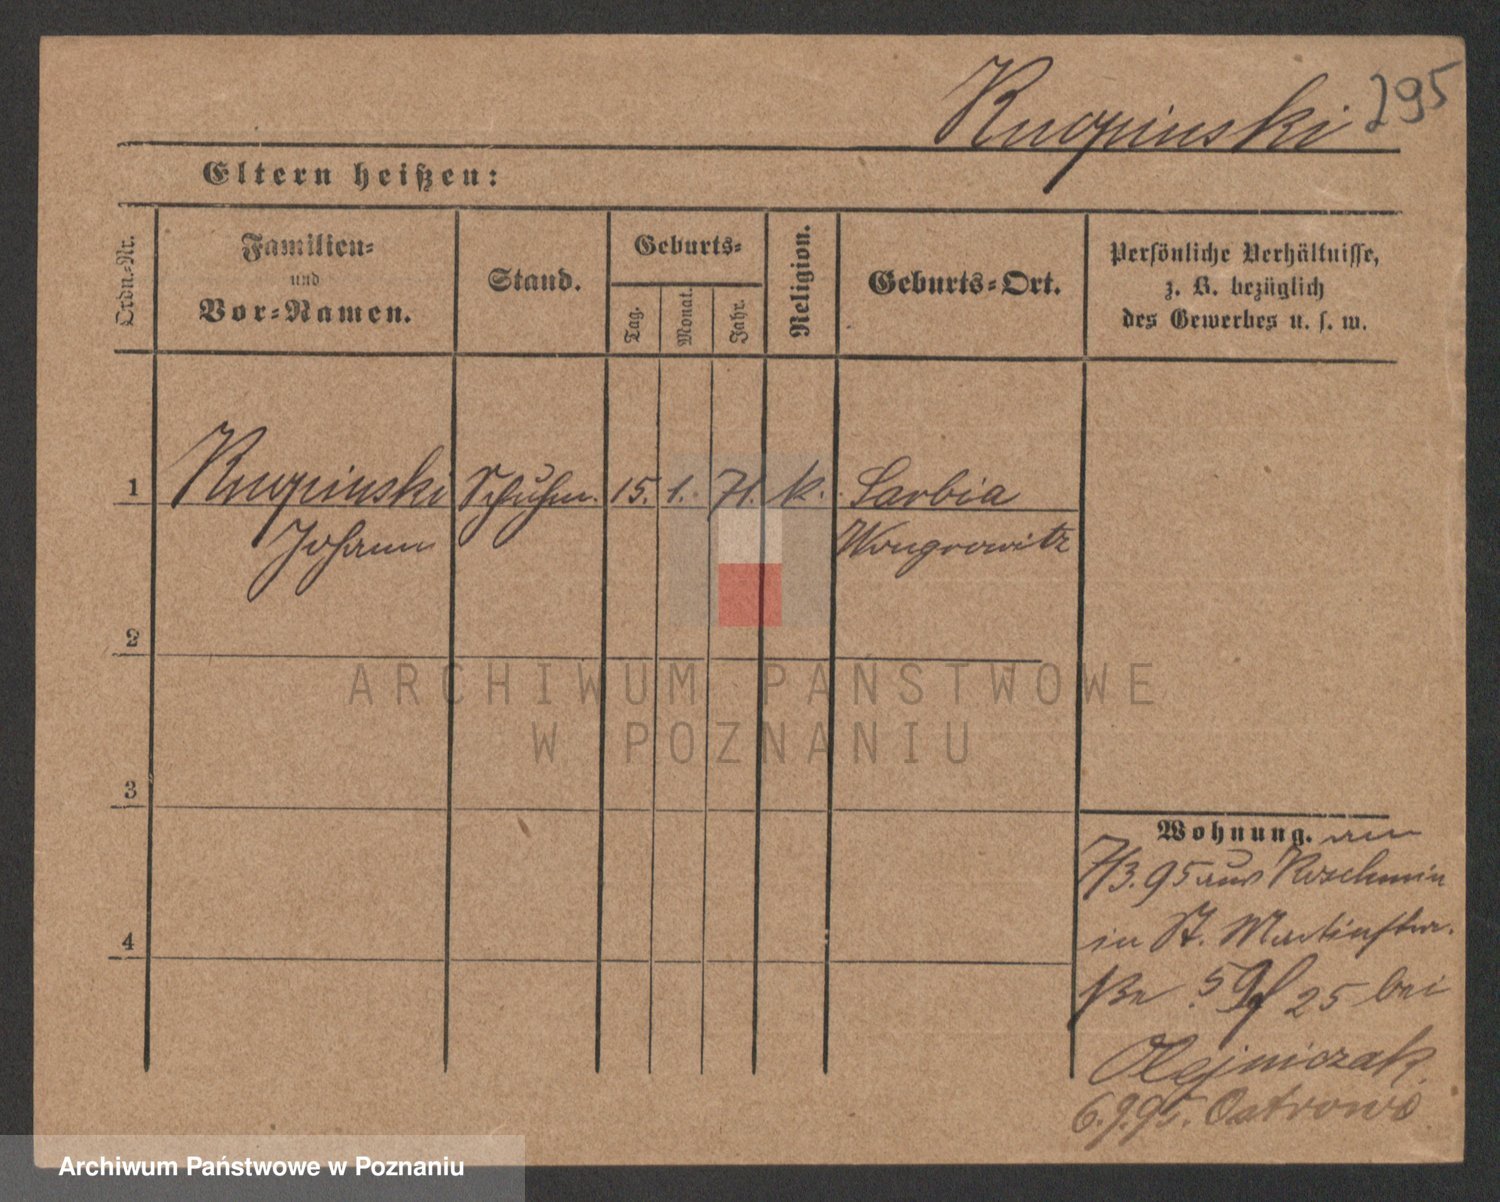 Knopinski 295
Eltern heißen:
Ordn.-Nr.
Familien-
und
Vor-Namen.
Stand.
Geburts-
Tag.
Monat.
Jahr.
Religion.
Geburts-Ort.
Persönliche Verhältnisse,
z. B. bezüglich
des Gewerbes u. s. w.
1 Knopinski Schuhm. 15. 1. 71. k. Sarbia
Johann Wongrowitz
2
3
4
Wohnung. am
7/3.95 aus Koschmin
in St. Martinstra-
ße 59 25 bei
Olejniczak
6.9.95. Ostrowo
ARCHIWUM PAŃSTWOWE
W POZNANIU
Archiwum Państwowe w Poznaniu